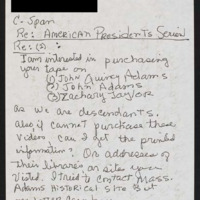 C-Span
Re: AMERICAN PRESIDENTS SERIES
Re: (3) :
I am interested in purchasing
your tape on
(1) John Quincy Adams
(2) John Adams
(3) Zachary Taylor
as we are descendants.
Also if cannot purchase these
videos can I get the printed
information? Or addresses of
their libraries or sites you
visted. I tried to contact Mass.
Adams Historical site but